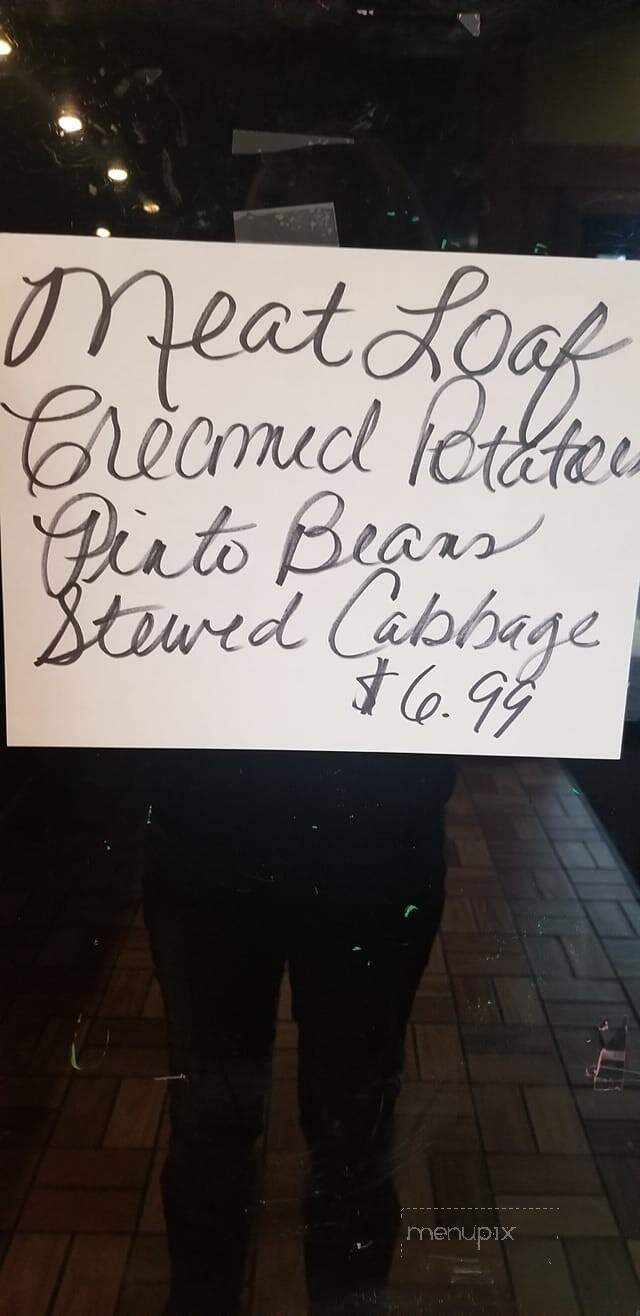 Meat Loaf
Creamed Potatoes
Pinto Beans
Stewed Cabbage
$6.99
menupix